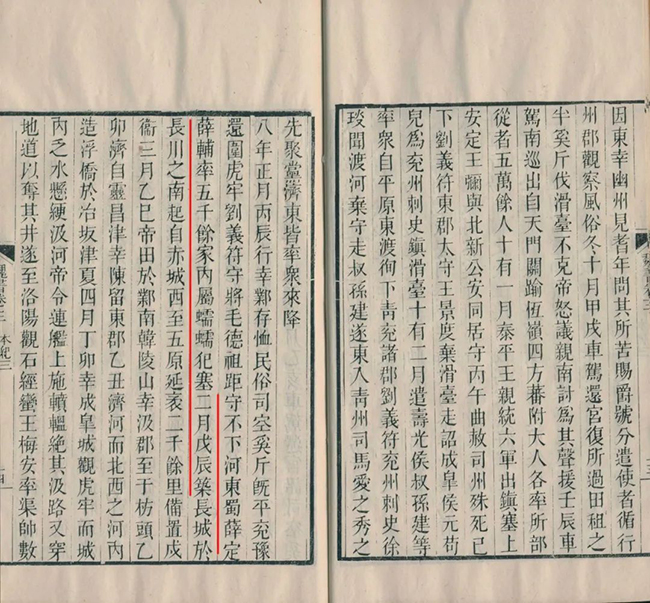 因東幸幽州見耆年問其所苦賜爵號分遣使者循行
州郡觀察風俗冬十月甲戌車駕還宮復所過田租之
半奚斤伐滑臺不克帝怒議親南討為其聲援壬辰車
駕南巡出自天門關踰恆嶺四方蕃附大人各率所部
從者五萬餘人十有一月泰平王親統六軍出鎮塞上
安定王彌與北新公安同居守丙午曲赦司州殊死已
下劉義符東郡太守王景度棄滑臺走詔成皋侯元苟
兒為兗州刺史鎮滑臺十有二月遣壽光侯叔孫建等
率眾自平原東渡徇下青兗諸郡劉義符兗州刺史徐
琰聞渡河棄守走叔孫建遂東入青州司馬愛之秀之
先聚黨濟東皆率眾來降
八年正月丙辰行幸鄴存恤民俗司空奚斤既平兗豫
還圍虎牢劉義符守將毛德祖距守不下河東蜀薛定
薛輔率五千餘家內屬蠕蠕犯塞二月戊辰築長城於
長川之南起自赤城西至五原延袤二千餘里備置戍
衞三月乙巳帝田於鄴南韓陵山幸汲郡至于枋頭乙
卯濟自靈昌津幸陳留東郡乙丑濟河而北西之河內
造浮橋於冶坂津夏四月丁卯幸成皋城觀虎牢而城
內乏水懸綆汲河帝令連艦上施轒轀絕其汲路又穿
地道以奪其井遂至洛陽觀石經蠻王梅安率渠帥數
本紀三